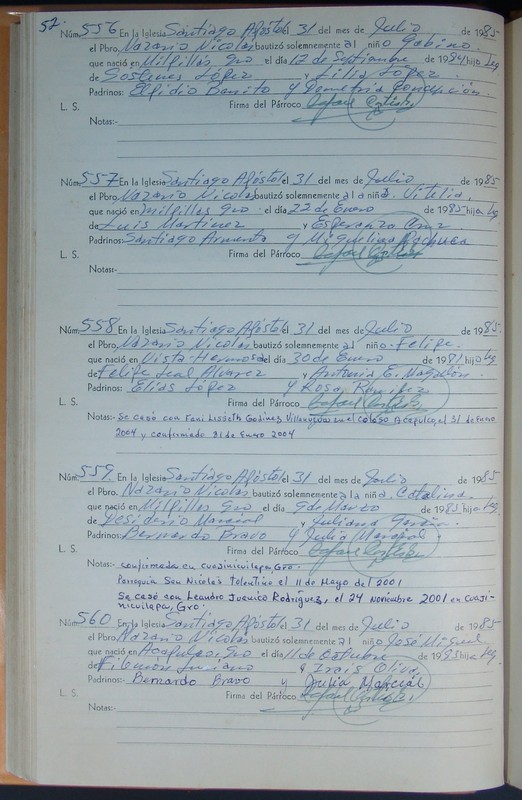 52.
Núm. 556 En la Iglesia Santiago Apóstol el 31 del mes de Julio de 1985
el Pbro. Nazario Nicolas bautizó solemnemente al niño Gabino.
que nació en Milpillas Gro el día 12 de Septiembre de 1984 hijo Leg
de Sostenes López y Lilia López.
Padrinos: Elpidio Benito y Demetria Concepción.
L. S. Firma del Párroco
Notas:-
Núm. 557 En la Iglesia Santiago Apóstol el 31 del mes de Julio de 1985
el Pbro. Nazario Nicolas bautizó solemnemente a la niña. Vitelia.
que nació en Milpillas Gro. el día 22 de Enero de 1985 hija Leg
de Luis Martinez y Esperanza Cruz
Padrinos: Santiago Armenta y Miguelina Pachuca
L. S. Firma del Párroco
Notas:-
Núm. 558 En la Iglesia Santiago Apóstol el 31 del mes de Julio de 1985
el Pbro. Nazario Nicolas bautizó solemnemente al niño-Felipe.
que nació en Vista-Hermosa el día 30 de Enero de 1981 hijo Leg
de Felipe Leal Alvarez y Antonia E. Magallón.
Padrinos: Elias López y Rosa Ramirez
L. S. Firma del Párroco
Notas:- Se casó con Fani Lisseth Godinez Villanueva en el Coloso Acapulco, el 31 de Enero
2004 y confirmado 31 de Enero 2004
Núm. 559. En la Iglesia Santiago Apóstol el 31 del mes de Julio de 1985
el Pbro. Nazario Nicolas bautizó solemnemente a la niña. Catalina.
que nació en Milpillas Gro el día 9 de Marzo de 1985 hija Leg
de Desiderio Marcial y Juliana Garcia.
Padrinos: Bernardo Bravo y Julia Marcial
L. S. Firma del Párroco
Notas:- confirmada en Cuajinicuilapa, Gro.
Parroquia San Nicolas Tolentino el 11 de Mayo del 2001
Se casó con Leandro Juenico Rodríguez, el 24 noviembre 2001 en Cuaji-
nicuilapa, Gro.
Núm. 560 En la Iglesia Santiago Apóstol el 31 del mes de Julio de 1985
el Pbro. Nazario Nicolas bautizó solemnemente al niño José Miguel
que nació en Acapulco, Gro el día 11 de Octubre de 19 hijo Leg.
de Filemón y Irais Oliva
Padrinos: Bernardo Bravo y Julia Marcial
L. S. Firma del Párroco
Notas:-